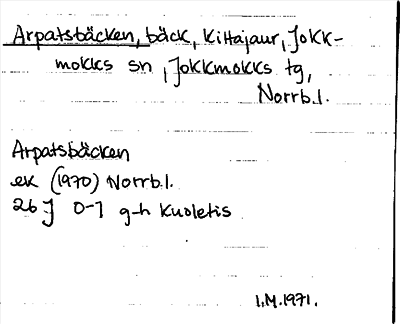 Arpatsbäcken, bäck, Kittajaur, Jokk-
mokks sn, Jokkmokks tg,
Norrb.l.
Arpatsbäcken
ek (1970) Norrb.l.
26 J 0-1 g-h Kuoletis
I.M. 1971.